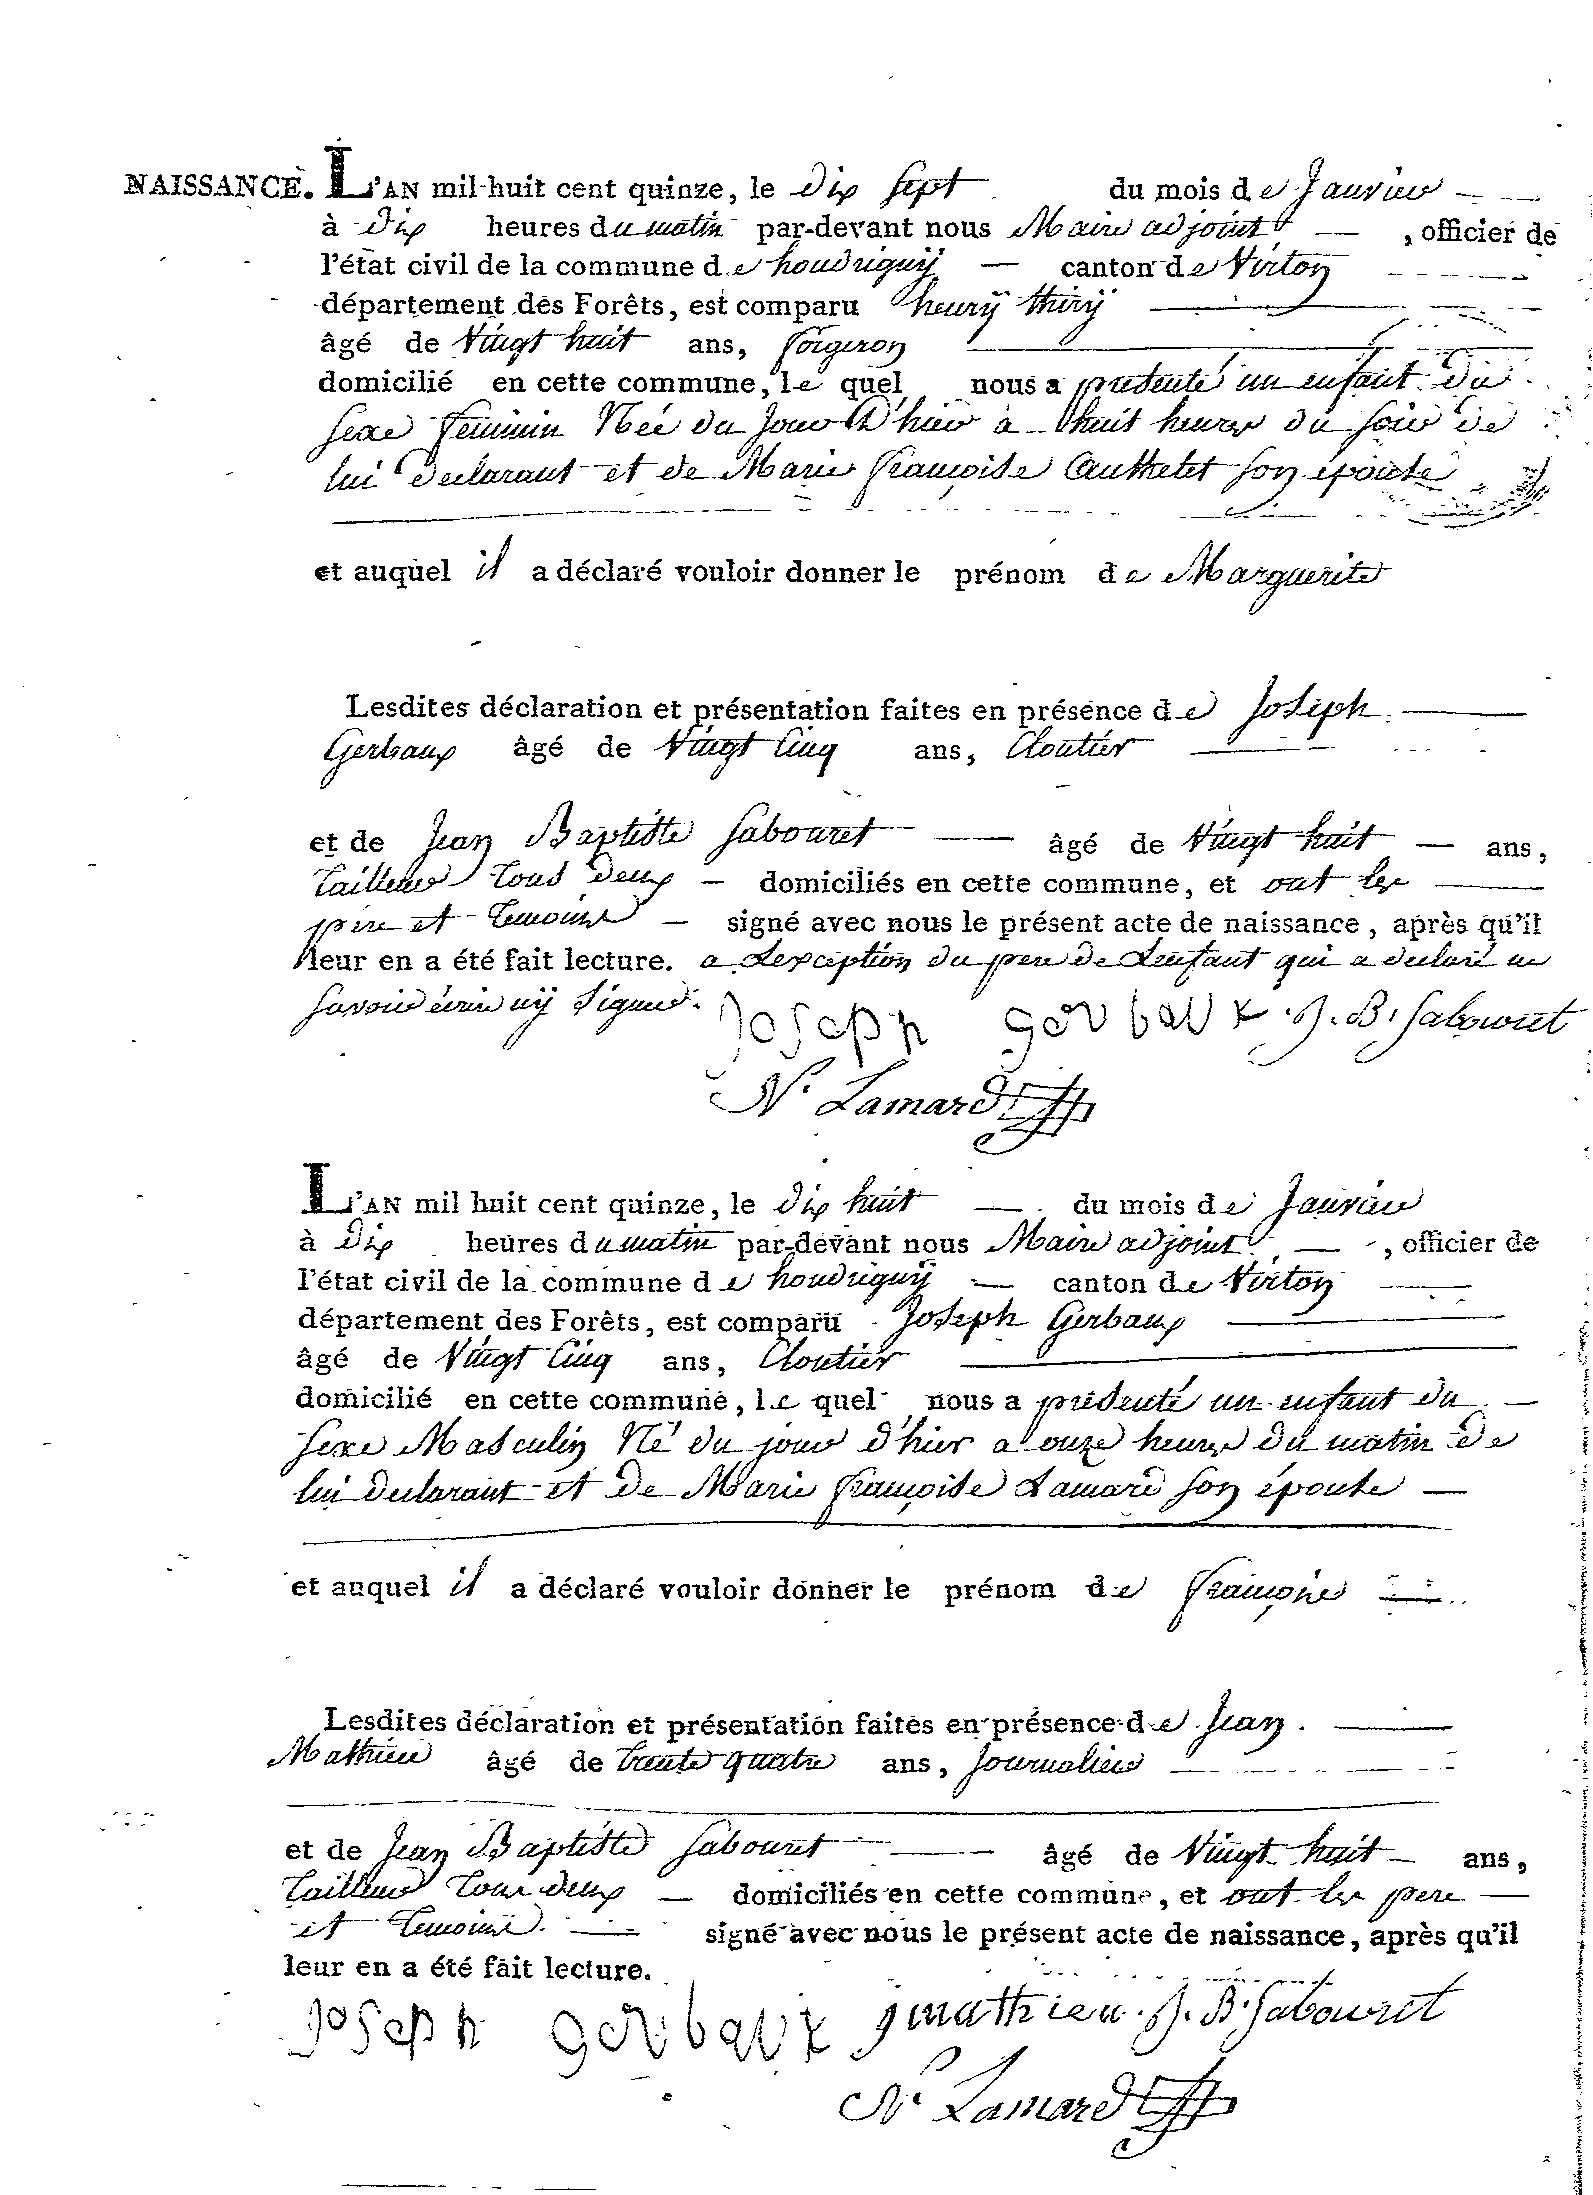 NAISSANCE. L'AN mil-huit cent quinze, le Dix Sept du mois de Janvier
à Dix heures du matin par-devant nous Maire adjoint, officier de
l'état civil de la commune de houdriguÿ canton de Virton
département des Forêts, est comparu henrÿ thirÿ
âgé de Vingt huit ans, forgeron
domicilié en cette commune, le quel nous a présenté un enfant du
sexe feminin Née du Jour D'hier a huit heures du soir de
lui declarant et de Marie françoise Authelet son épouse
et auquel il a déclaré vouloir donner le prénom de Marguerite
Lesdites déclaration et présentation faites en présence de Joseph
Gerbaux âgé de Vingt Cinq ans, Cloutier
et de Jean Baptiste Sabouret âgé de Vingt huit ans,
tailleur tous deux domiciliés en cette commune, et ont les
pere et temoins signé avec nous le présent acte de naissance, après qu'il
leur en a été fait lecture. a Lexception du pere de Lenfant qui a declaré ne
savoir écrire nÿ signer.
Joseph gerbaux J. B. Sabouret
N. Lamard
L'AN mil huit cent quinze, le Dix huit du mois de Janvier
à Dix heures du matin par-devant nous Maire adjoint, officier de
l'état civil de la commune de houdriguÿ canton de Virton
département des Forêts, est comparu Joseph Gerbaux
âgé de Vingt Cinq ans, Cloutier
domicilié en cette commune, le quel nous a présenté un enfant du
sexe Masculin Né du jour d'hier a onze heures du matin de
lui declarant et de Marie françoise Lamard son épouse
et auquel il a déclaré vouloir donner le prénom de françois
Lesdites déclaration et présentation faites en présence de Jean
Mathieu âgé de trente quatre ans, journalier
et de Jean Baptiste Sabouret âgé de Vingt huit ans,
tailleur tous deux domiciliés en cette commune, et ont les pere
et temoins signé avec nous le présent acte de naissance, après qu'il
leur en a été fait lecture.
Joseph gerbaux jmathieu J. B. Sabouret
N. Lamard